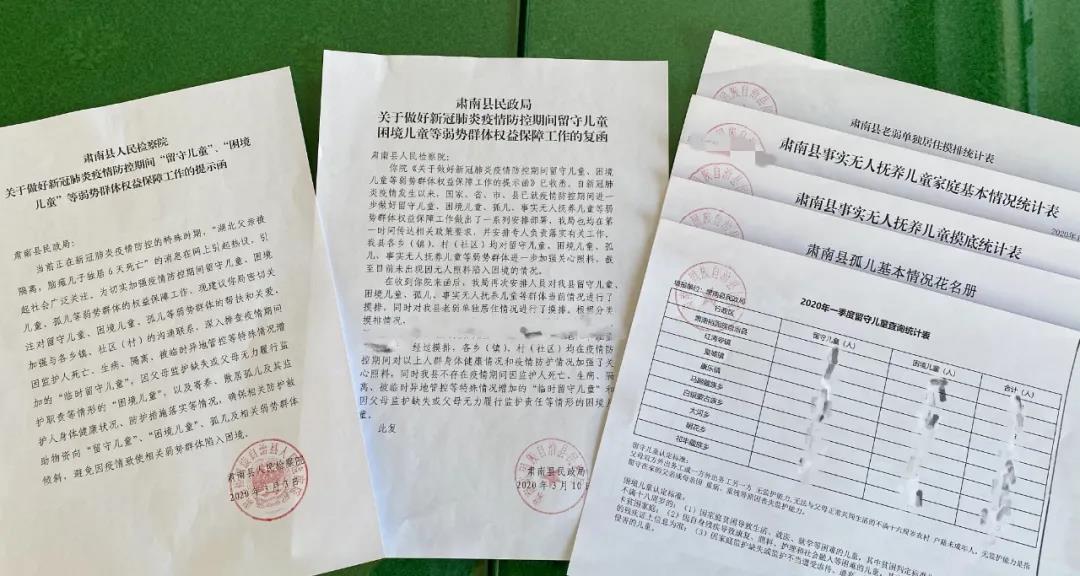 肃南县人民检察院
关于做好新冠肺炎疫情防控期间“留守儿童”、“困境
儿童”等弱势群体权益保障工作的提示函
肃南县民政局:
当前正在新冠肺炎疫情防控的特殊时期,“湖北父亲被
隔离,脑瘫儿子独居6天死亡”的消息在网上引起热议,引
起社会广泛关注。为切实加强疫情防控期间留守儿童、困境
儿童、孤儿等弱势群体的权益保障工作,现建议你局密切关
注对留守儿童、困境儿童、孤儿等弱势群体的帮扶和关爱,
加强与各乡镇、社区(村)的沟通联系,深入检查疫情期间
因监护人死亡、生病、隔离、被临时异地管控等特殊情况增
加的“临时留守儿童”,因父母监护缺失或父母无力履行监
护职责等情形的“困境儿童”,以及寄养、散居孤儿及其监
护人身体健康状况、防护措施落实等情况,确保相关防护救
助物资向“留守儿童”、“困境儿童”、孤儿及相关弱势群体
倾斜,避免因疫情致使相关弱势群体陷入困境。
肃南县人民检察院
2020年3月3日
肃南县民政局
关于做好新冠肺炎疫情防控期间留守儿童
困境儿童等弱势群体权益保障工作的复函
肃南县人民检察院:
你院《关于做好新冠肺炎疫情防控期间留守儿童、困境
儿童等弱势群体权益保障工作的提示函》已收悉。自新冠
肺炎疫情发生以来,国家、省、市、县已就疫情防控期间进一
步做好留守儿童、困境儿童、孤儿、事实无人抚养儿童等弱
势群体权益保障工作做出了一系列安排部署,我局也均在第
一时间传达相关政策要求,并安排专人负责落实有关工作。
我县各乡(镇)、村(社区)均对留守儿童、困境儿童、孤
儿、事实无人抚养儿童等弱势群体进一步加强关心照料,截
至目前未出现因无人照料陷入困境的情况。
在收到你院来函后,我局再次安排人员对我县留守儿童、
困境儿童、孤儿、事实无人抚养儿童等群体当前情况进行了
摸排,同时对我县老弱单独居住情况进行了摸排。根据分类
摸排情况,
经过摸排,各乡(镇)、村(社区)均在疫情防
控期间对以上人群身体健康情况和疫情防护情况加强了关
心照料;同时我县不存在疫情期间因监护人死亡、生病、隔
离、被临时异地管控等特殊情况增加的“临时留守儿童”和
因父母监护缺失或父母无力履行监护责任等情形的困境儿
童。
此复
肃南县民政局
2020年3月10日
肃南县老弱单独居住摸排统计表
肃南县事实无人抚养儿童家庭基本情况统计表
肃南县事实无人抚养儿童摸底统计表
肃南县孤儿基本情况花名册
2020年一季度留守儿童查询统计表
填报单位:肃南县民政局
行政区 留守儿童(人) 困境儿童(人) 合计(人)
肃南裕固族自治县
红湾寺镇
皇城镇
康乐镇
马蹄藏族乡
白银蒙古族乡
大河乡
明花乡
祁丰藏族乡
留守儿童认定标准:
困境儿童认定标准: